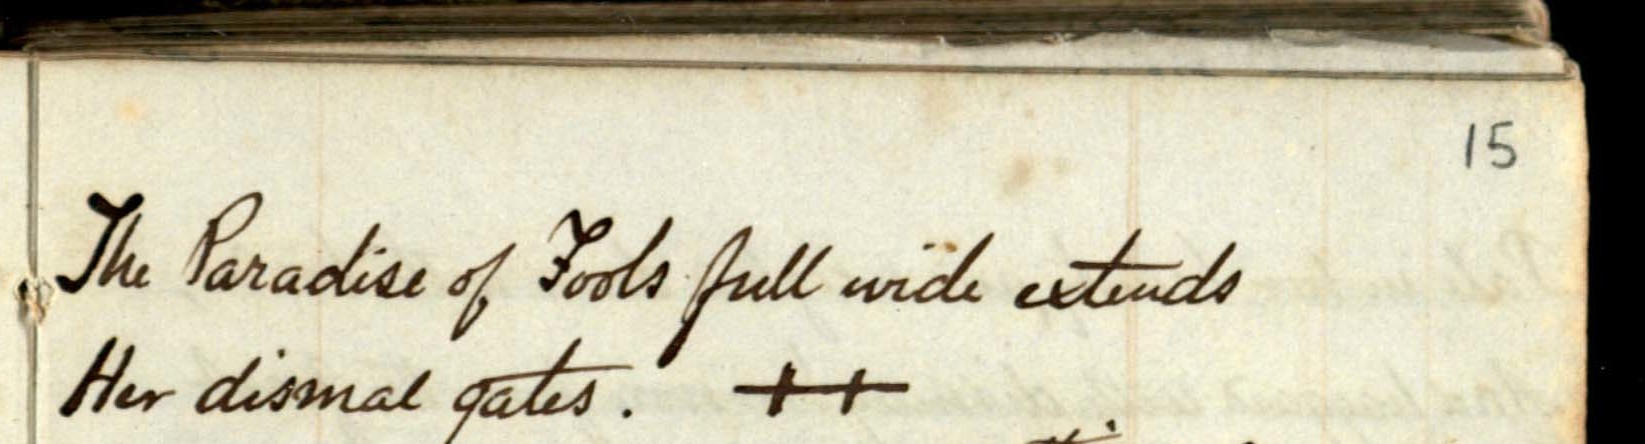 15
The Paradise of Fools full wide extends
Her dismal gates. ++